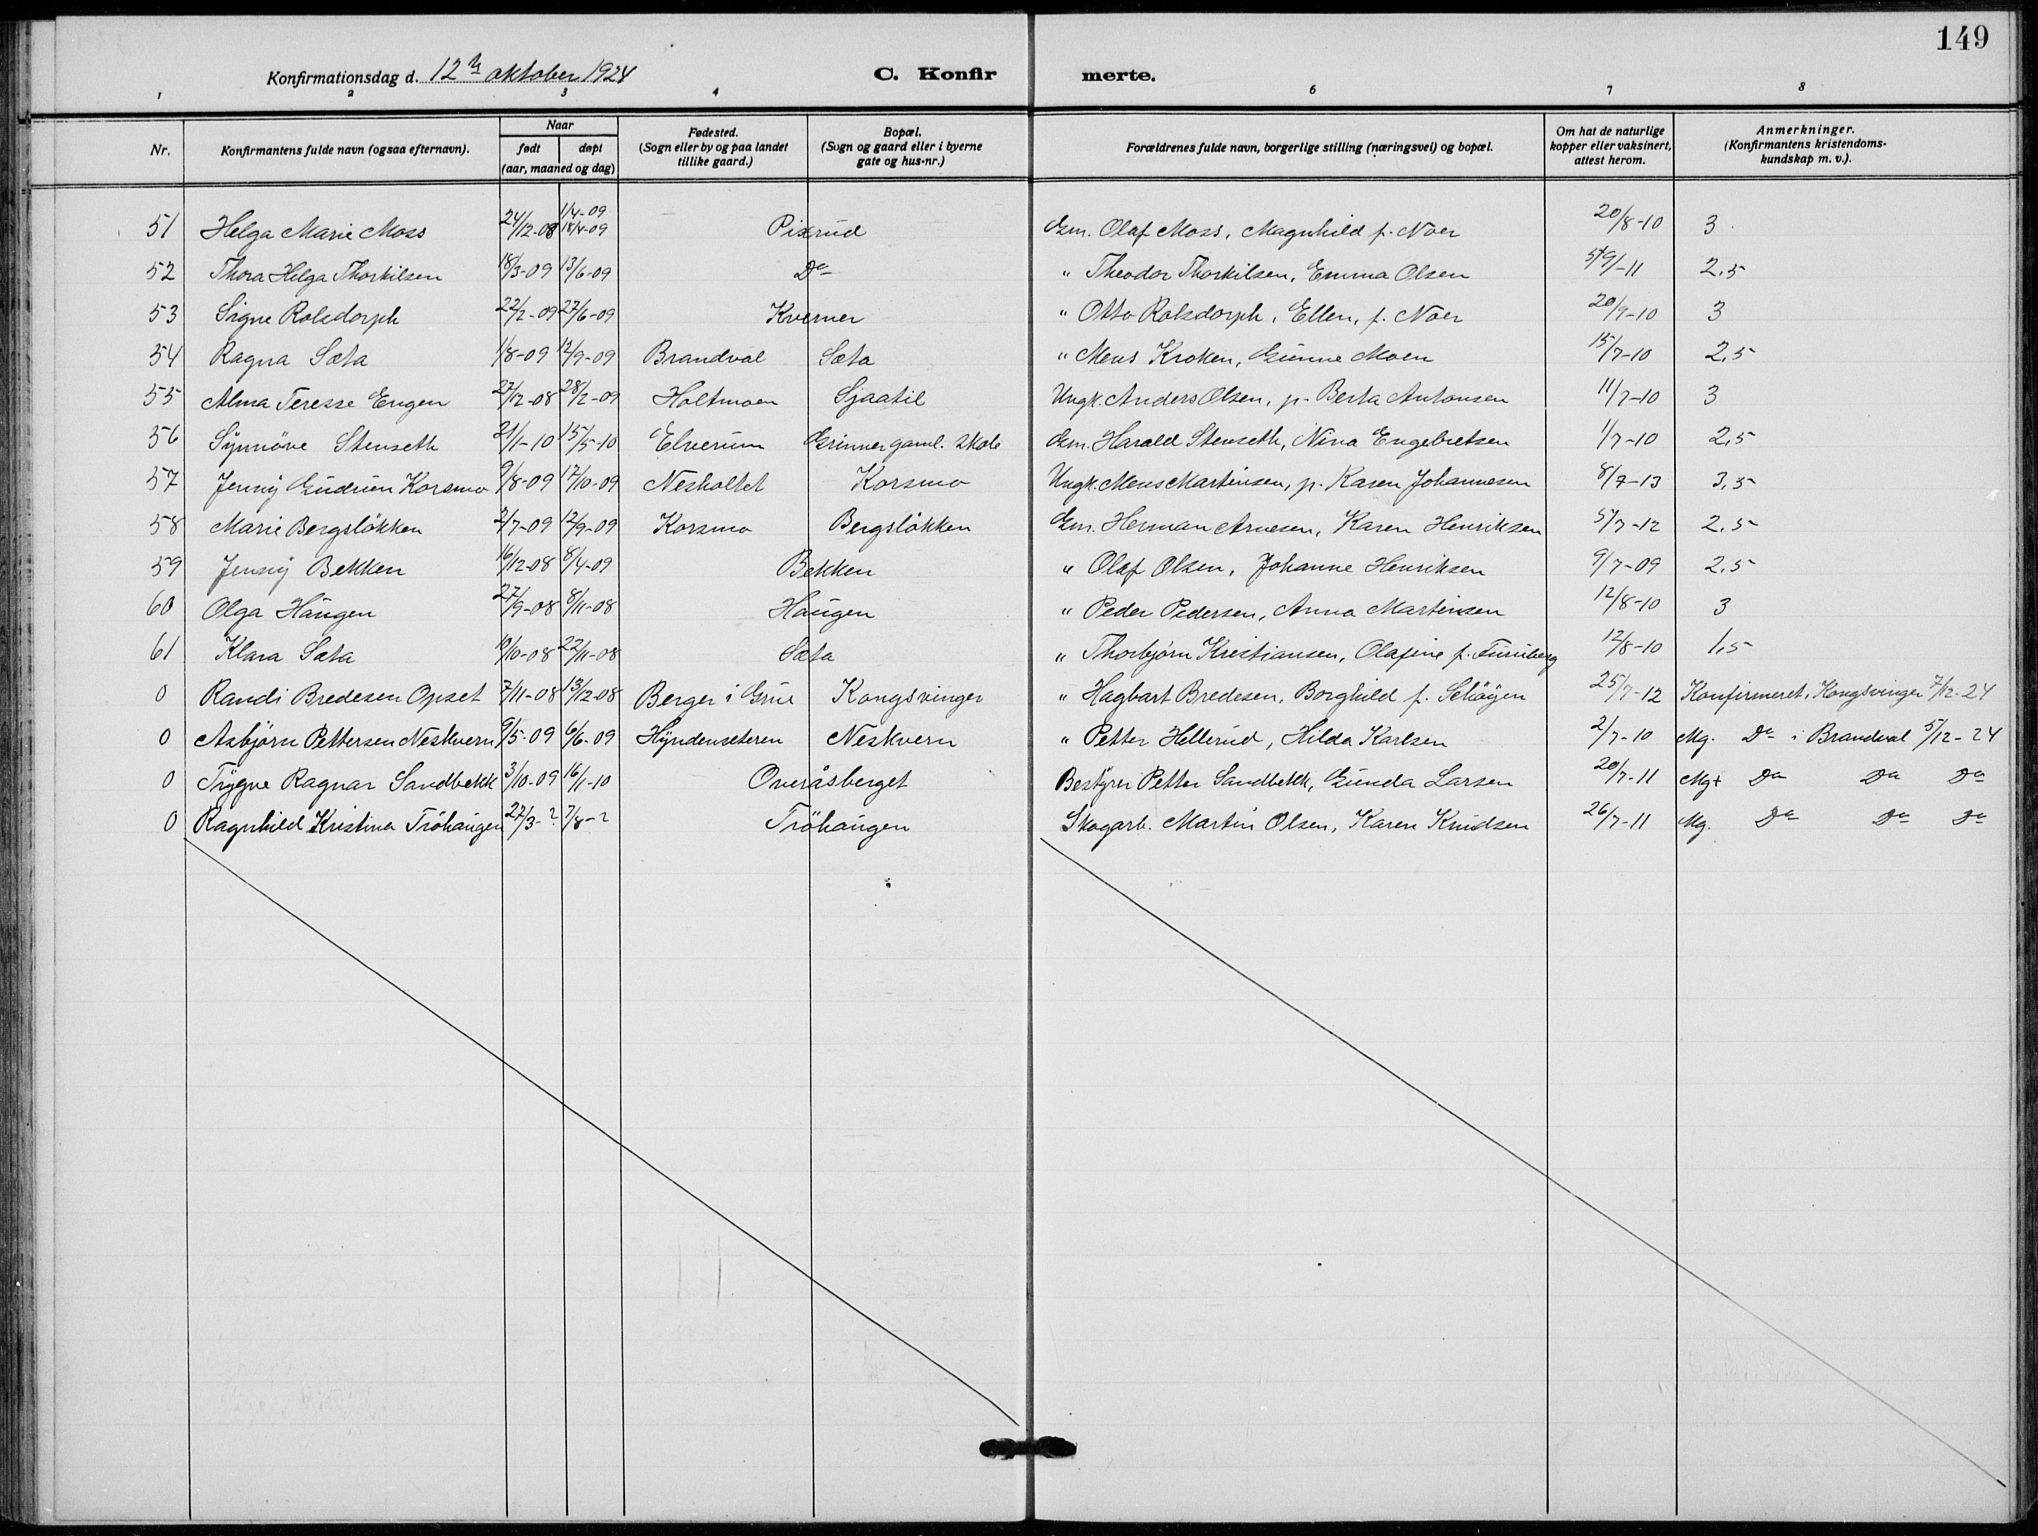 149
Konfirmationsdag d. 12te oktober 1924 C. Konfirmerte.
1 2 3 4 6 7 8
Nr. Konfirmantens fulde navn (ogsaa efternavn). Naar født døpt (aar, maaned og dag) Fødested. (Sogn eller by og paa landet tillike gaard.) Bopæl. (Sogn og gaard eller i byerne gate og hus-nr.) Forældrenes fulde navn, borgerlige stilling (næringsvei) og bopæl. Om hat de naturlige kopper eller vaksinert, attest herom. Anmerkninger. (Konfirmantens kristendomskundskap m. v.).
51 Helga Marie Moss 24/12-08 1/4-09 18/4-09 Pixrud Gm. Olaf Moss, Magnhild f. Noer 20/8-10 3
52 Thora Helga Thorkilsen 18/3-09 13/6-09 Do " Theodor Thorkilsen, Emma Olsen 5/9-11 2,5
53 Signe Rolsdorph 22/2-09 27/6-09 Kverner " Otto Rolsdorph, Ellen, f. Noer 20/9-10 3
54 Ragna Sæta 1/8-09 12/9-09 Brandval Sæta " Mens Kroken, Gunne Moen 15/7-10 2,5
55 Alma Teresse Engen 27/12-08 28/2-09 Holtmoen Sjaatil Ungk. Anders Olsen, p. Berta Antonsen 11/7-10 3
56 Synnöve Stenseth 21/1-10 15/5-10 Elverum Grinner gaml. skole Gm. Harald Stenseth, Nina Engebretsen 1/7-10 2,5
57 Jenny Gudrun Korsmo 9/8-09 17/10-09 Nesholtet Korsmo Ungk. Mens Martinsen, p. Karen Johannesen 8/7-13 3,5
58 Marie Bergslökken 2/7-09 12/9-09 Korsmo Bergslökken Gm. Herman Arnesen, Karen Henriksen 5/7-12 2,5
59 Jenny Bekken 16/12-08 8/4-09 Bekken " Olaf Olsen, Johanne Henriksen 9/7-09 2,5
60 Olga Haugen 27/9-08 8/11-08 Haugen " Peder Pedersen, Anna Martinsen 12/8-10 3
61 Klara Sæta 10/10-08 22/11-08 Sæta " Thorbjørn Kristiansen, Olafine f. Furuberg 12/8-10 1,5
0 Randi Bredesen Opset 7/11-08 13/12-08 Berger i Grue Kongsvinger " Hagbart Bredesen, Borghild f. Schöyen 25/7-12 Konfirmeret, Kongsvinger 7/12-24
0 Asbjörn Pettersen Neskvern 9/5-09 6/6-09 Hyndenseteren Neskvern " Petter Hellerud, Hilda Karlsen 2/7-10 Mg. Do i Brandval 5/12-24
0 Trygve Ragnar Sandbekk 3/10-09 16/1-10 Overåsberget Bestyrer Petter Sandbekk, Gunda Larsen 20/7-11 Mg+ Do Do Do
0 Ragnhild Kristina Tröhaugen 27/3-? 7/8-? Tröhaugen Skogarb. Martin Olsen, Karen Knudsen 26/7-11 Mg. Do Do Do